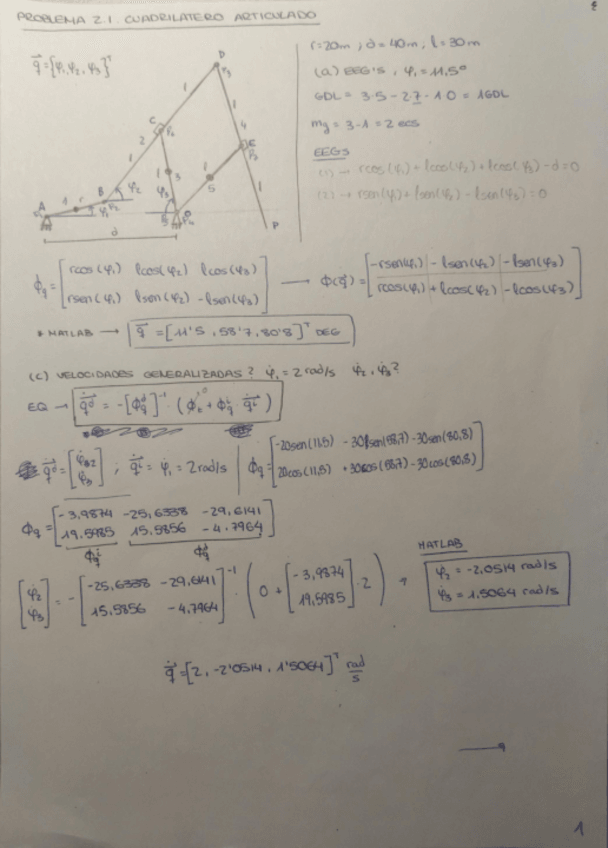 PROBLEMA 2.1. CUADRILATERO ARTICULADO
q⃗ = [φ₁, φ₂, φ₃]ᵀ
r=20m ; d=40m ; l=30m
(a) EEG'S , φ₁ = 11.5º
GDL = 3·5 - 2·7 - 1·0 = 1GDL
mg = 3-1 = 2 ecs
EEGS
(1) → rcos(φ₁) + lcos(φ₂) + lcos(φ₃) - d = 0
(2) → rsen(φ₁) + lsen(φ₂) - lsen(φ₃) = 0
D
φ₃
1
C
φ₂
2
4
1
E
φ₃
3
5
1
A
1
r
B
φ₁
φ₂
φ₂
φ₃
P
d
ϕq = [rcos(φ₁) lcos(φ₂) lcos(φ₃)
rsen(φ₁) lsen(φ₂) -lsen(φ₃)]
→ ϕ(q⃗) = [-rsen(φ₁) - lsen(φ₂) - lsen(φ₃)
rcos(φ₁) + lcos(φ₂) - lcos(φ₃)]
* MATLAB → q⃗ = [11'5 , 58'7, 80'8]ᵀ DEG
(c) VELOCIDADES GENERALIZADAS? φ̇₁ = 2 rad/s φ̇₂, φ̇₃?
EQ → q̇ᵈ = -[ϕqᵈ]⁻¹ · (ϕt⁰ + ϕqⁱ · q̇ⁱ)
q̇ᵈ = [φ̇₂ φ̇₃] ; q̇ⁱ = φ̇₁ = 2 rad/s
ϕq = [-20sen(11,5) - 30sen(58,7) - 30sen(80,8)
20cos(11,5) + 30cos(58,7) - 30cos(80,8)]
ϕq = [-3,9874 -25,6338 -29,6141
19,5985 15,5856 -4,7964]
ϕqⁱ ϕqᵈ
[φ̇₂ φ̇₃] = -[-25,6338 -29,6141
15,5856 -4,7964]⁻¹ · (0 + [-3,9874
19,5985] · 2) →
MATLAB
φ̇₂ = -2.0514 rad/s
φ̇₃ = 1.5064 rad/s
q̇ = [2, -2'0514, 1'5064]ᵀ rad/s
1